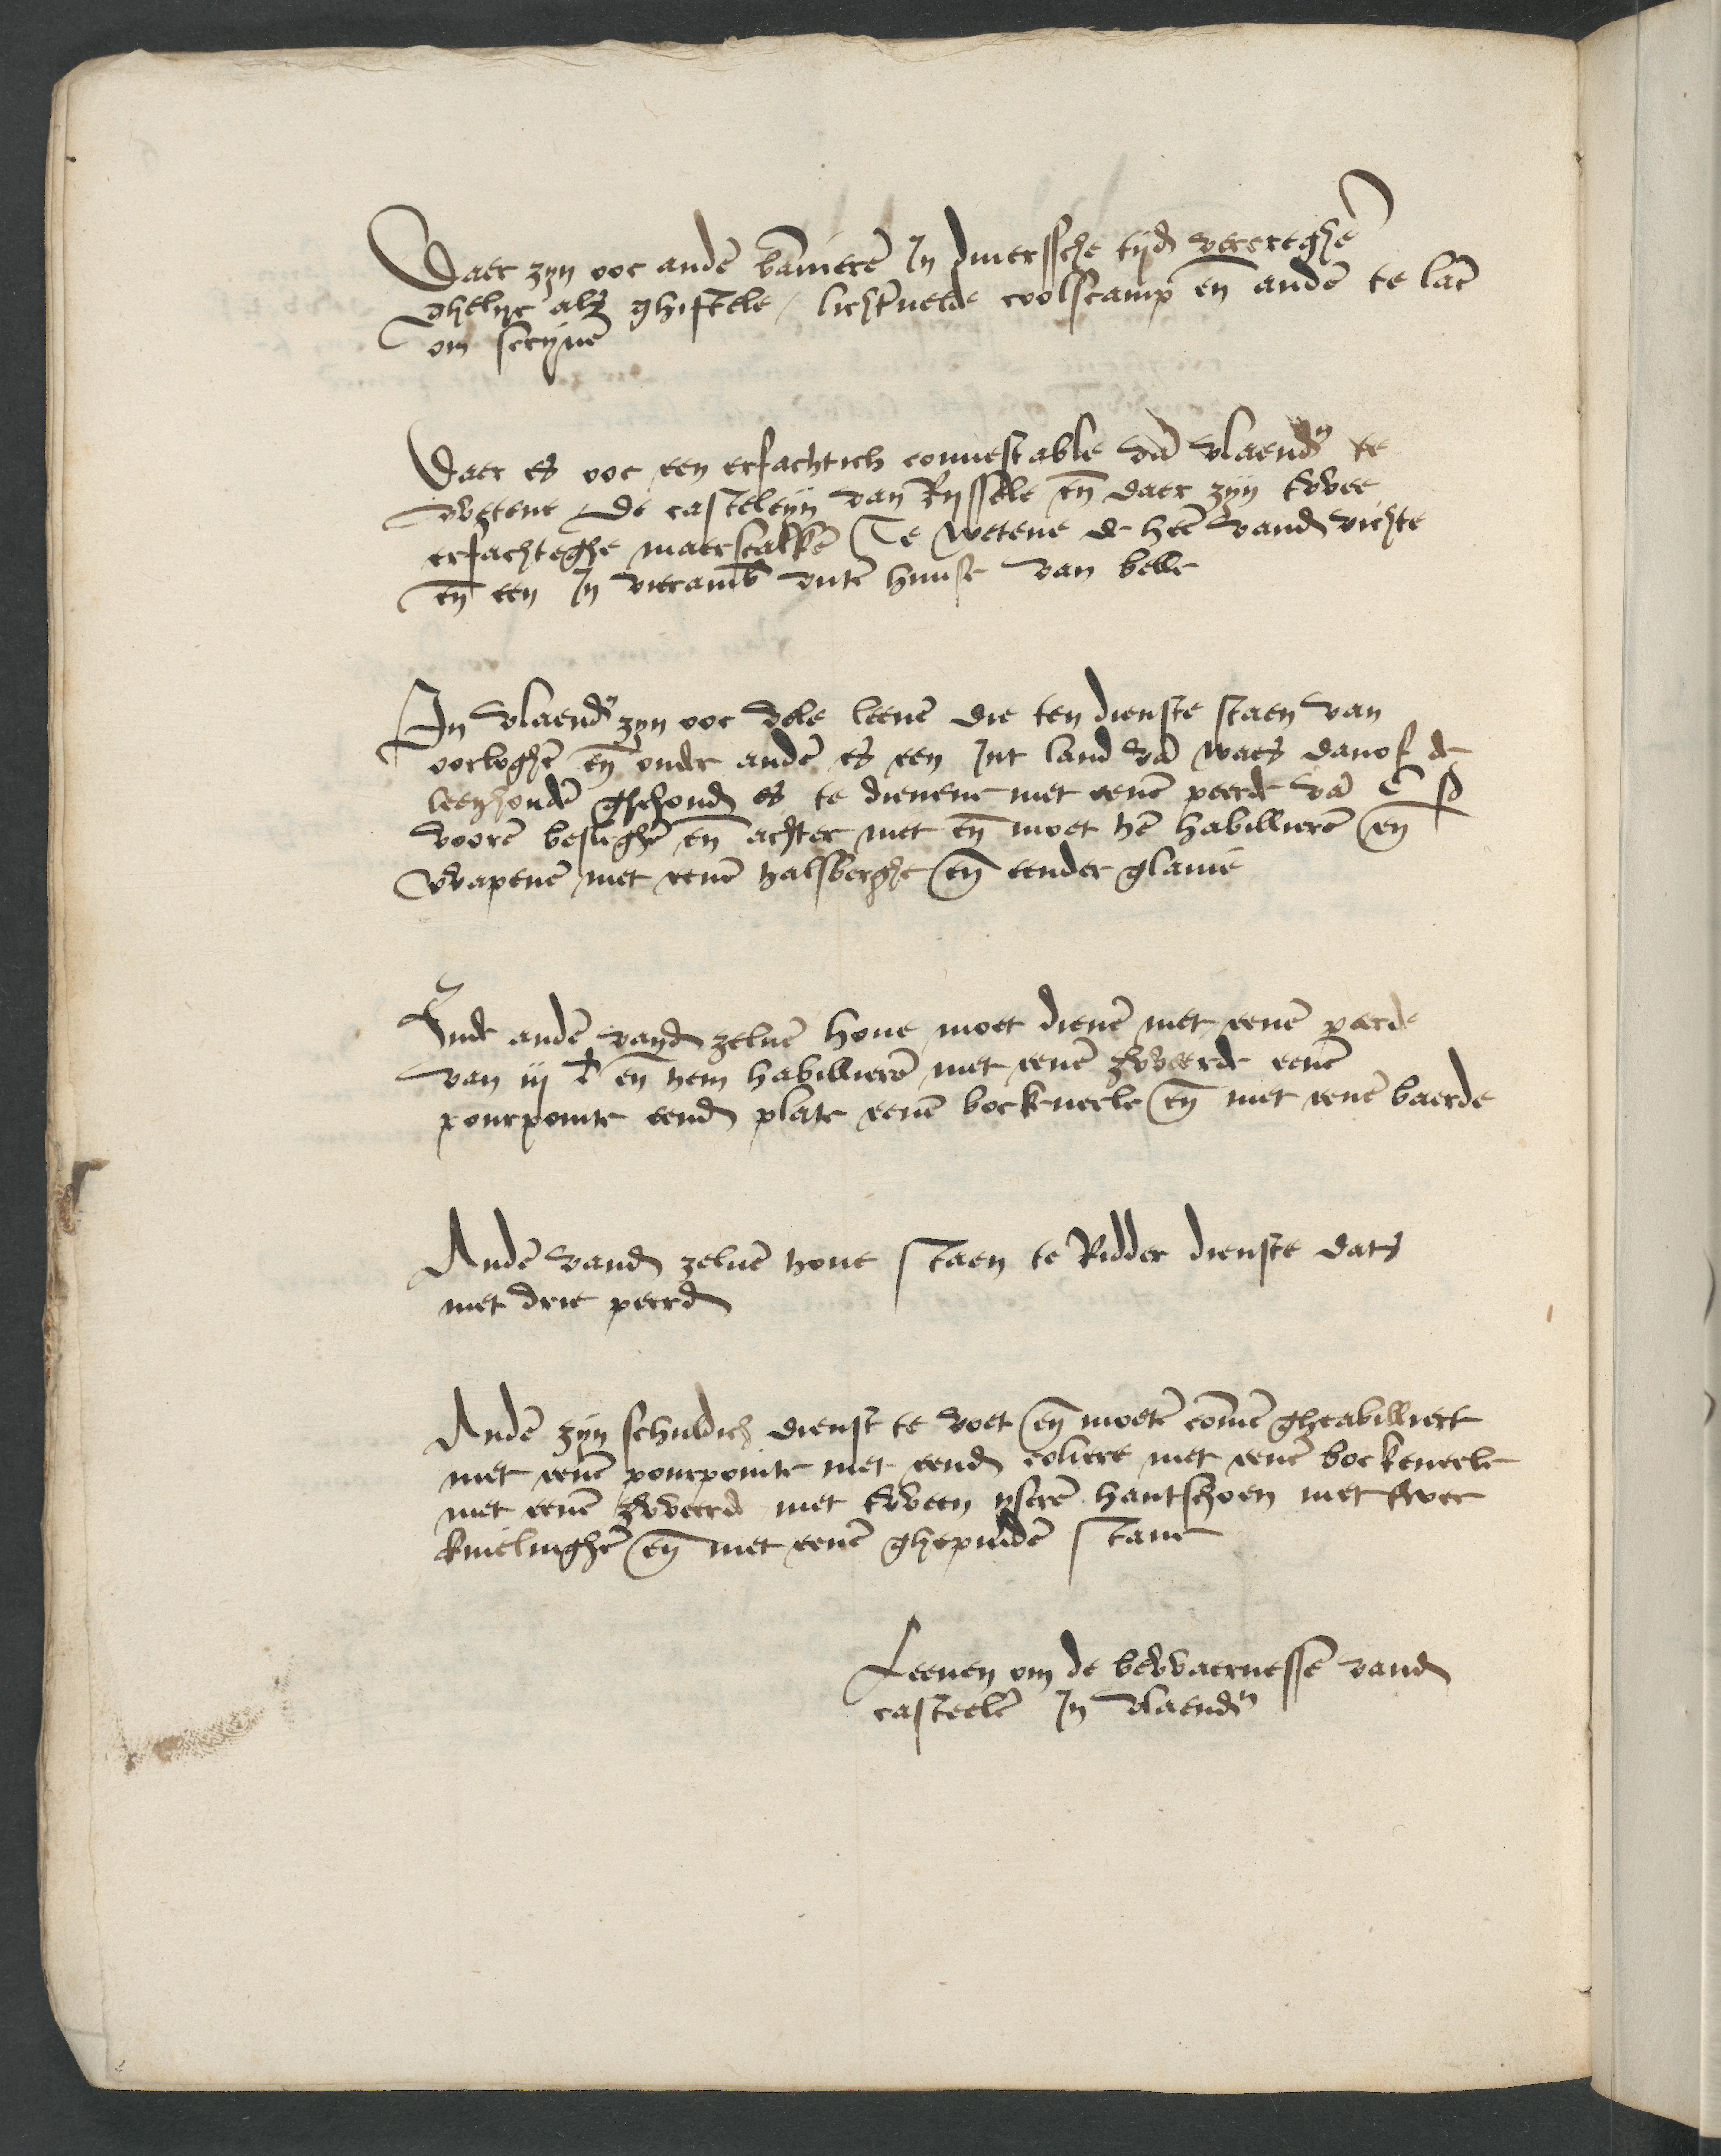 Daer zyn ooc andē bānierē In diuerssche tijd vercreghē
ghelijc als ghistele / lichteruelde colscamp eñ andē te lāc
om scrijuē
Daer es ooc een erfachtich connestable vā vlaendn te
wetene De casteleyn van Rijssele eñ daer zijn twee
erfachteghe maerscalkē Te wetene de heē vand vichte
eñ een In vierambt vutē huuse van belle
In vlaendn zyn ooc vele leenē die ten dienste staen van
oorloghē eñ onder andē es een Int land vā waes danof de
leenhoudē ghehoudē es te dienene met eenē peerde vā c s
voorē besleghē eñ achter niet eñ moet hē habillierē eñ
wapenē met eenē halsberghe eñ eender glauie
Ende andē vand zeluē houe moet dienē met eenē peerde
van iij lb eñ hem habillierē met eenē zweerde eenē
pourpointe eend plate eenē bockeneele eñ met eenē baerde
Andē vand zeluē houe staen te Ridder dienste dats
met drie peerdē
Andē zijn schuldich dienst te voet eñ moetē cōmē gheabilliert
met eenē pourpointe met eend coliere met eenē bockeneele
met eenē zweerd met tween yserē hantschoen met twee
knielinghē eñ met eenē ghepindē staue
Leenen om de bewaernessē vand
casteelē In vlaendn